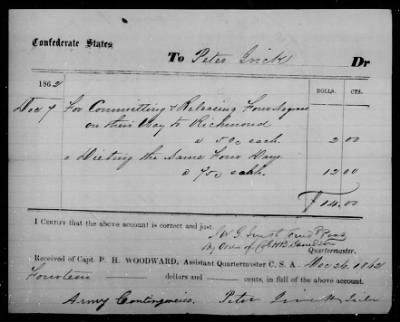 Confederate States
To Peter Frick Dr
1862 DOLLS. CTS.
Dec 7 For Committing & Releasing Four Negroes
on their Way to Richmond
a 50c each. 2 00
" Dieting the Same Four Days
a 75c each. 12 00
$14.00
I CERTIFY that the above account is correct and just.
W. G.
By Order of
Quartermaster.
Received of Capt. P. H. WOODWARD, Assistant Quartermaster C. S. A. 26, 1862
Fourteen dollars and cents, in full of the above account.
Army Contingencies. Peter